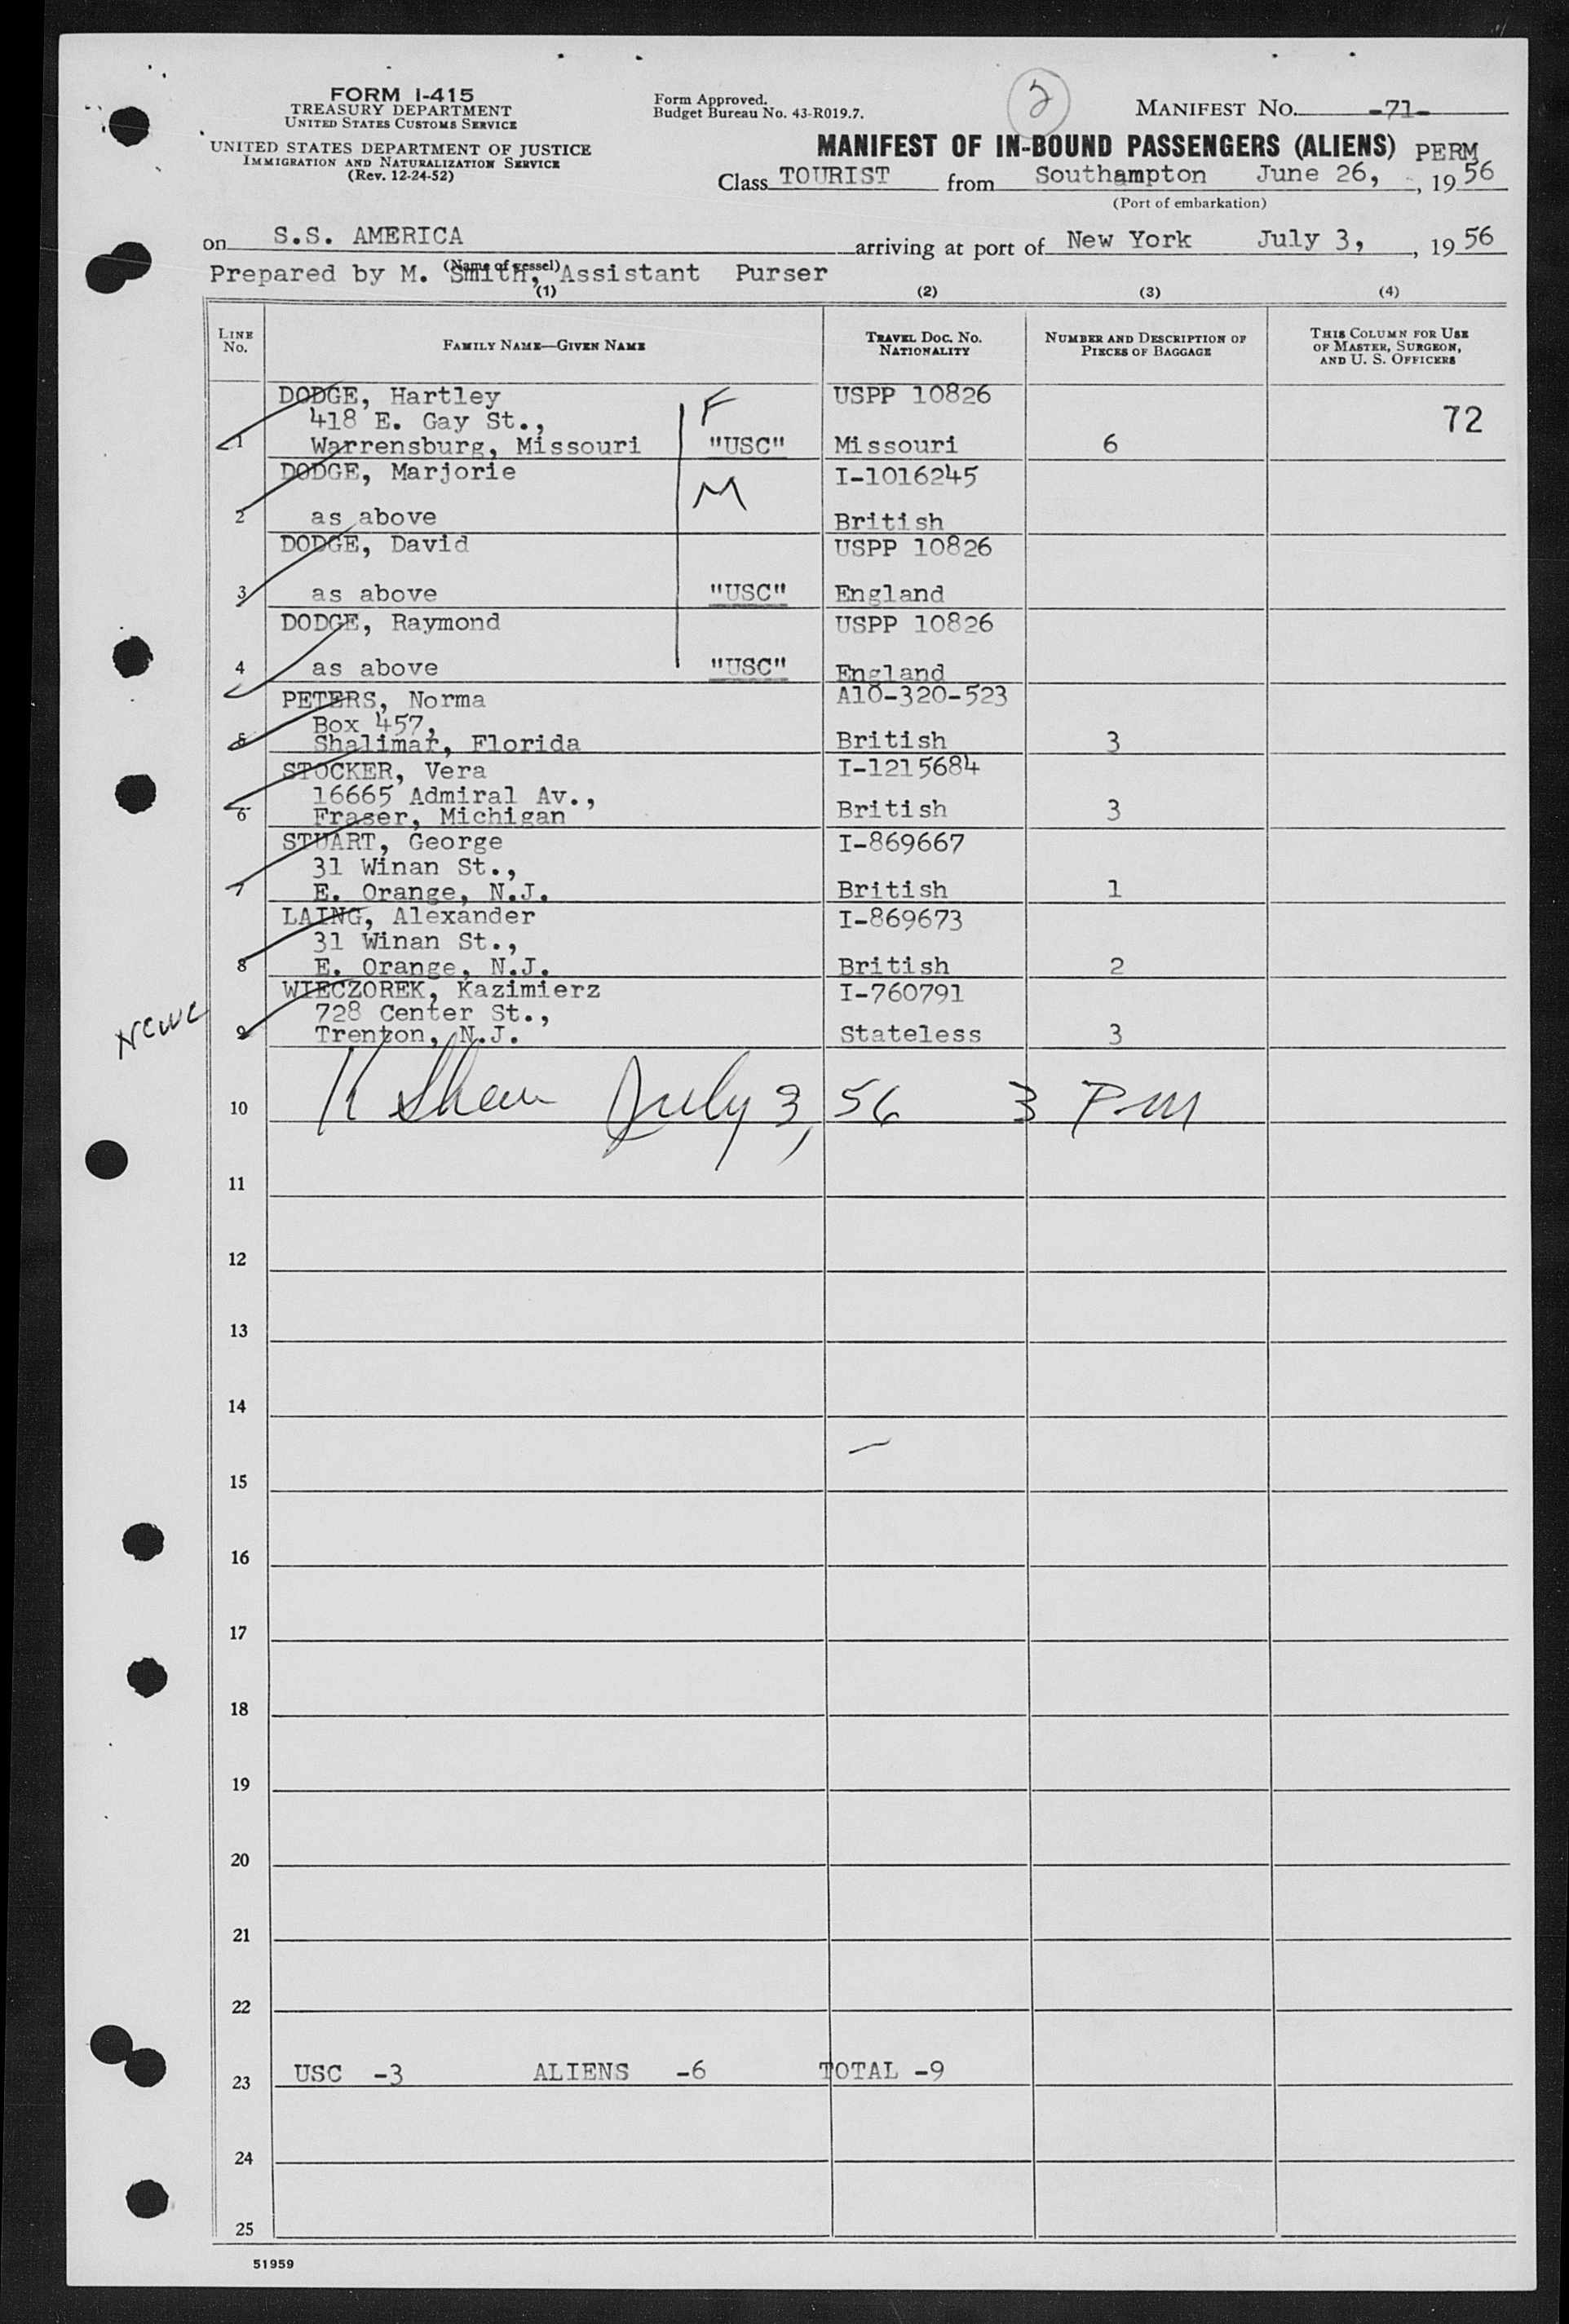 FORM I-415
TREASURY DEPARTMENT
UNITED STATES CUSTOMS SERVICE
UNITED STATES DEPARTMENT OF JUSTICE
IMMIGRATION AND NATURALIZATION SERVICE
(Rev. 12-24-52)
Form Approved.
Budget Bureau No. 43-R019.7.
2
MANIFEST NO. -71-
MANIFEST OF IN-BOUND PASSENGERS (ALIENS) PERM
Class TOURIST from Southampton June 26, , 19 56
(Port of embarkation)
on S.S. AMERICA arriving at port of New York July 3, , 19 56
(Name of vessel)
Prepared by M. Smith, Assistant Purser
(1) (2) (3) (4)
LINE NO. FAMILY NAME—GIVEN NAME TRAVEL DOC. NO. NATIONALITY NUMBER AND DESCRIPTION OF PIECES OF BAGGAGE THIS COLUMN FOR USE OF MASTER, SURGEON, AND U. S. OFFICERS
DODGE, Hartley F USPP 10826
418 E. Gay St., 72
1 Warrensburg, Missouri "USC" Missouri 6
DODGE, Marjorie M I-1016245
2 as above British
DODGE, David USPP 10826
3 as above "USC" England
DODGE, Raymond USPP 10826
4 as above "USC" England
PETERS, Norma A10-320-523
Box 457,
5 Shalimar, Florida British 3
STOCKER, Vera I-1215684
16665 Admiral Av.,
6 Fraser, Michigan British 3
STUART, George I-869667
31 Winan St.,
7 E. Orange, N.J. British 1
LAING, Alexander I-869673
31 Winan St.,
8 E. Orange, N.J. British 2
WIECZOREK, Kazimierz I-760791
728 Center St.,
NCWC 9 Trenton, N.J. Stateless 3
10 K Shaw July 3, 56 3 PM
11
12
13
14
15
16
17
18
19
20
21
22
23 USC -3 ALIENS -6 TOTAL -9
24
25
51959